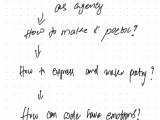 as agency
How to make it poetic?
How to express and make poetry?
How can code have emotions?